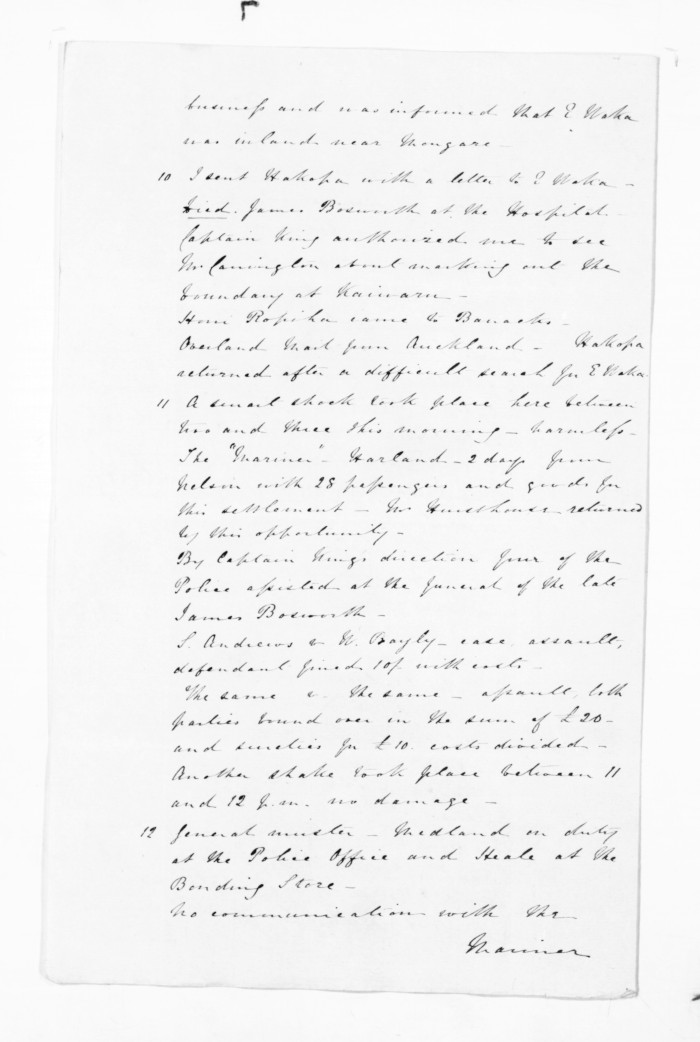 business and was informed that E Waka
was inland near Mongare -
10 I sent Hakopa with a letter to E Waka -
Died. James Bosworth at the Hospital.
Captain King authorized me to see
Mr Carrington about marking out the
boundary at Kaiwaru -
Honi Ropiha came to Barracks -
Overland Mail from Auckland - Hakopa
returned after a difficult search for E Waka
11 A smart shock took place here between
two and three this morning - harmless -
The "Mariner" - Harland - 2 days from
Nelson with 28 passengers and goods for
this settlement - Mr Hursthouse returned
by this opportunity -
By Captain King's direction four of the
Police assisted at the funeral of the late
James Bosworth -
S. Andrews v W. Bayly - case, assault,
defendant fined 10/. with costs -
The same v. the same - assault, both
parties bound over in the sum of £20 -
and sureties for £10. costs divided -
Another shake took place between 11
and 12 p.m. no damage -
12 General muster - Medland on duty
at the Police Office and Heale at the
Bonding Store -
No communication with the
Mariner